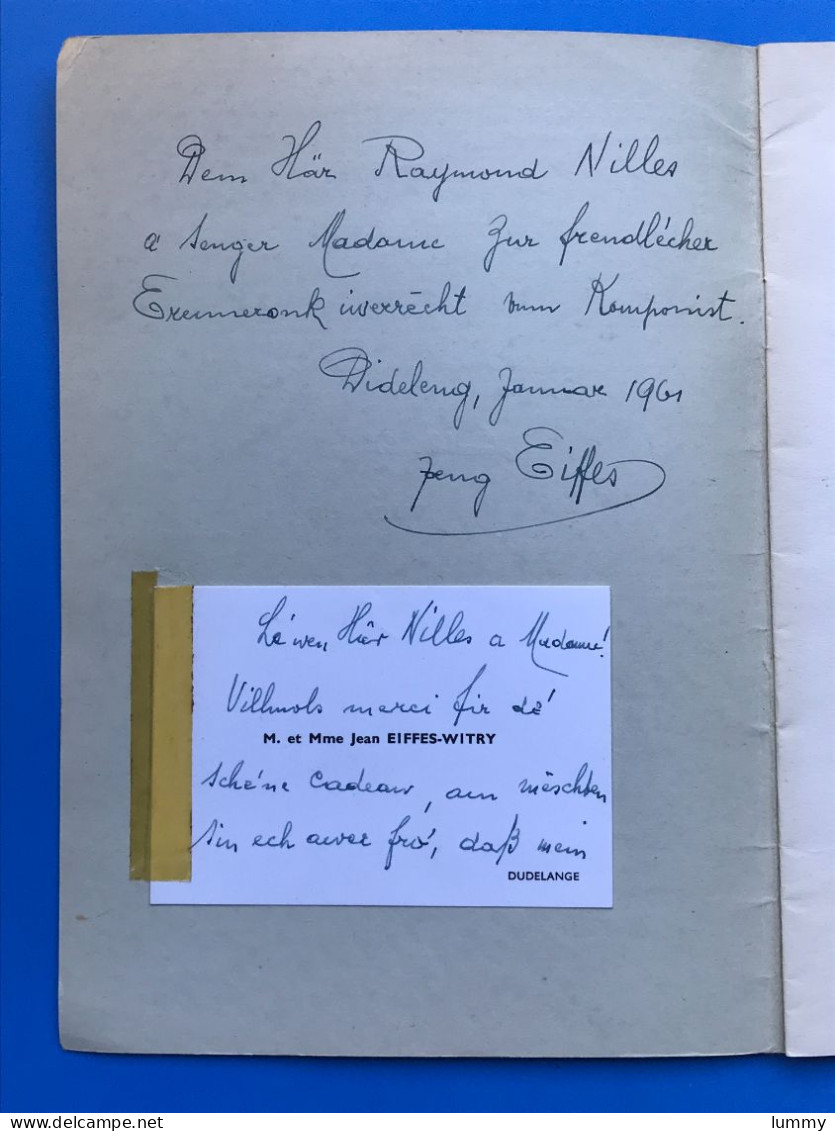 Dem Här Raymond Nilles
a senger Madame zur frendlécher
Erënneronk iwerrécht vum Komponist.
Dideleng, Januar 1961
Jeng Eiffes
Lé'wen Här Nilles a Madame!
Villmols merci fir dé'
M. et Mme Jean EIFFES-WITRY
sché'ne Cadeau, am mëschten
sin ech awer fro', daß mein
DUDELANGE
delcampe.net
lummy